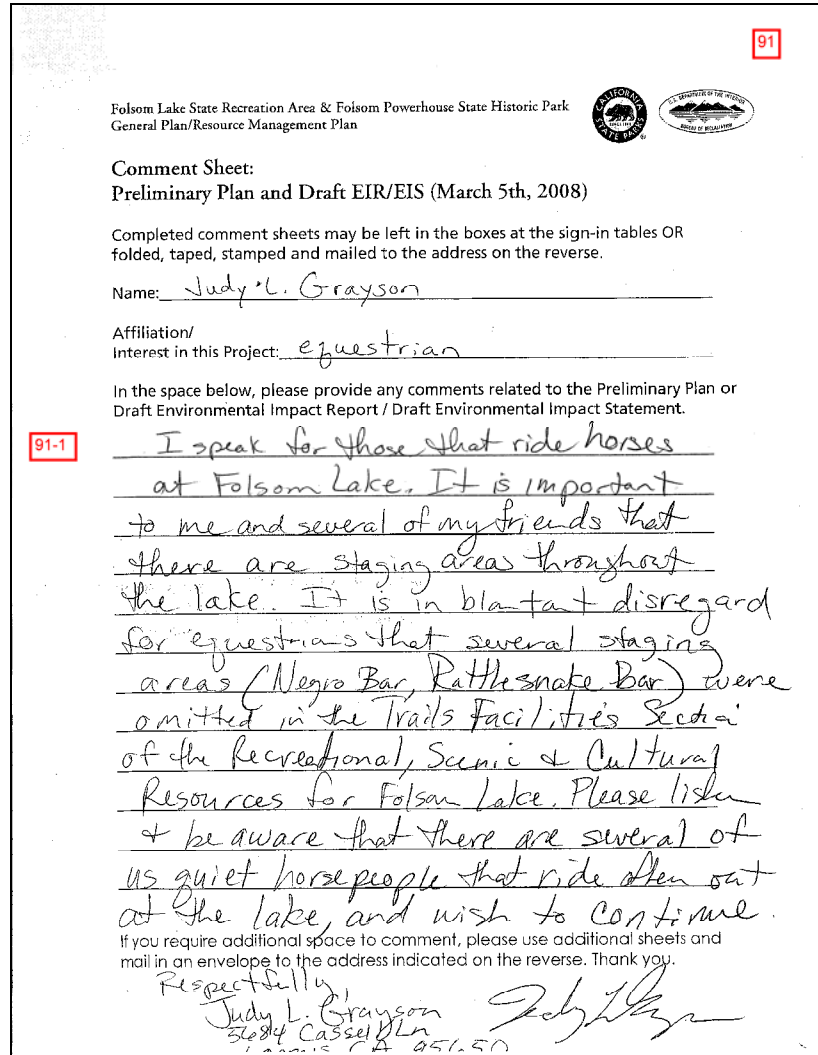 91
Folsom Lake State Recreation Area & Folsom Powerhouse State Historic Park
General Plan/Resource Management Plan
CALIFORNIA
STATE PARKS
U.S. DEPARTMENT OF THE INTERIOR
BUREAU OF RECLAMATION
Comment Sheet:
Preliminary Plan and Draft EIR/EIS (March 5th, 2008)
Completed comment sheets may be left in the boxes at the sign-in tables OR
folded, taped, stamped and mailed to the address on the reverse.
Name: Judy L. Grayson
Affiliation/
Interest in this Project: equestrian
In the space below, please provide any comments related to the Preliminary Plan or
Draft Environmental Impact Report / Draft Environmental Impact Statement.
91-1
I speak for those that ride horses
at Folsom Lake. It is important
to me and several of my friends that
there are staging areas throughout
the lake. It is in blantant disregard
for equestrians that several staging
areas (Negro Bar, Rattlesnake Bar) were
omitted in the Trails Facilities Section
of the Recreational, Scenic & Cultural
Resources for Folsom Lake. Please listen
& be aware that there are several of
us quiet horsepeople that ride often out
at the lake, and wish to continue.
If you require additional space to comment, please use additional sheets and
mail in an envelope to the address indicated on the reverse. Thank you.
Respectfully,
Judy L. Grayson
5684 Cassel Ln
CA 95650